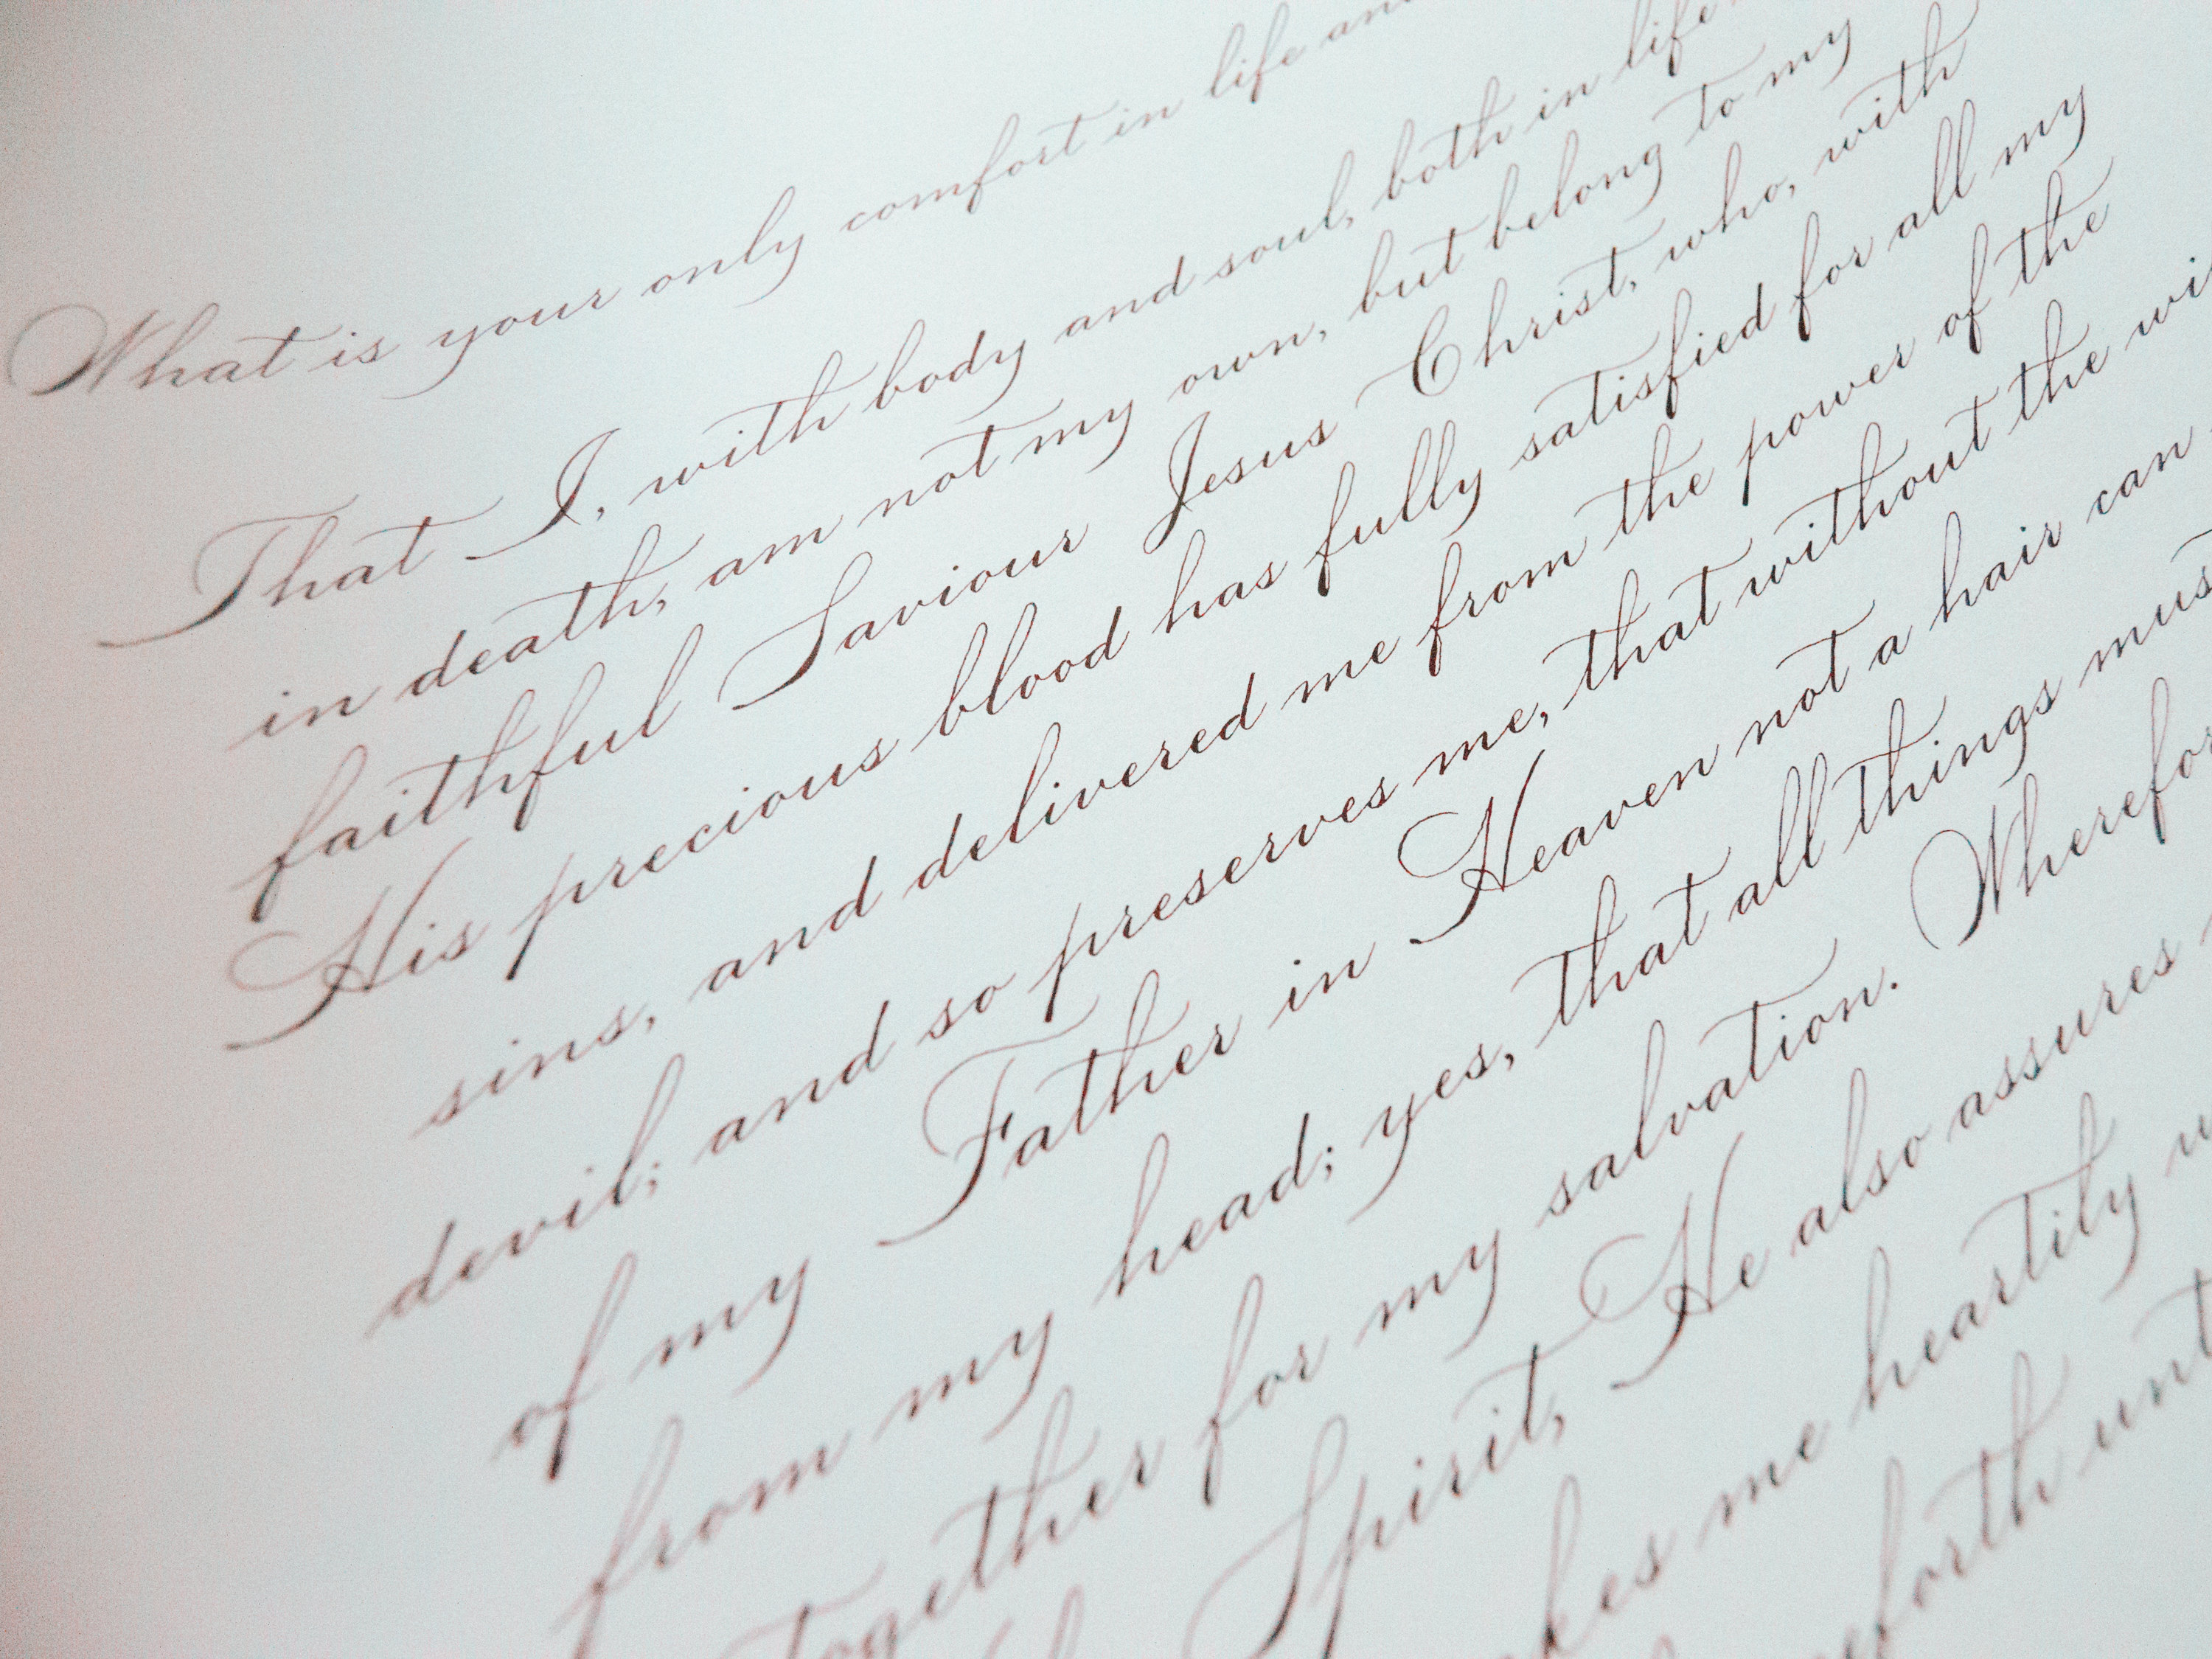 What is your only comfort in life and
That I, with body and soul, both in life
in death, am not my own, but belong to my
faithful Saviour Jesus Christ, who, with
His precious blood has fully satisfied for all my
sins, and delivered me from the power of the
devil; and so preserves me, that without the wi
of my Father in Heaven not a hair can
from my head; yes, that all things mus
together for my salvation. Wherefor
Spirit, He also assures
kes me heartily
eforth unt